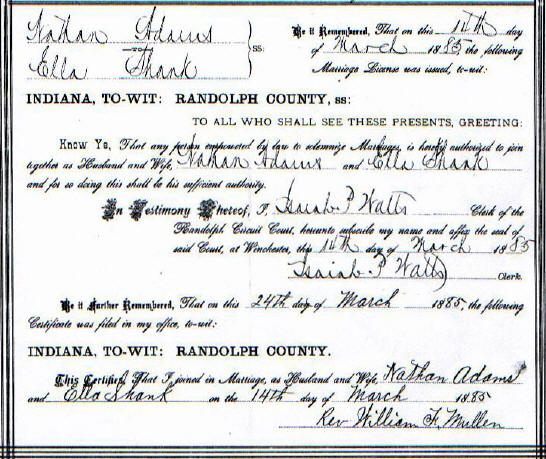 Nathan Adams
to
Ella Shank
ss:
Be it Remembered, That on this 14th day
of March 1885 the following
Marriage License was issued, to-wit:
INDIANA, TO-WIT: RANDOLPH COUNTY, ss:
TO ALL WHO SHALL SEE THESE PRESENTS, GREETING:
Know Ye, That any person empowered by law to solemnize Marriages, is hereby authorized to join
together as Husband and Wife, Nathan Adams and Ella Shank
and for so doing this shall be his sufficient authority.
In Testimony Whereof, I, Isaiah P Watts Clerk of the
Randolph Circuit Court, hereunto subscribe my name and affix the seal of
said Court, at Winchester, this 14th day of March 1885
Isaiah P Watts Clerk.
Be it Further Remembered, That on this 24th day of March 1885, the following
Certificate was filed in my office, to-wit:
INDIANA, TO-WIT: RANDOLPH COUNTY.
This Certifies, That I joined in Marriage, as Husband and Wife, Nathan Adams
and Ella Shank on the 14th day of March 1885
Rev William F. Mullen